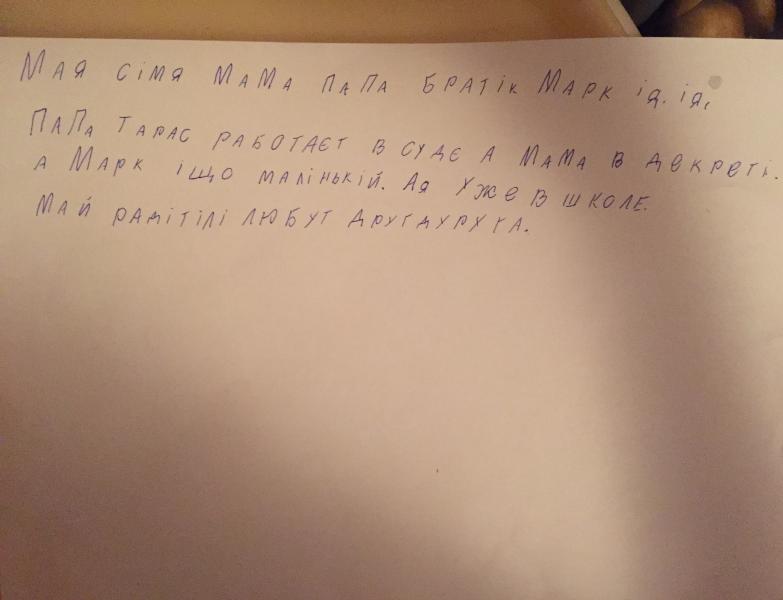 Мая сімя мама папа братік Марк ія. ія,
ПаПа Тарас работаєт в судє а мама в декреті.
а Марк іщо малінькій. Ая уже в школе.
Май радітілі любут другдуруга.